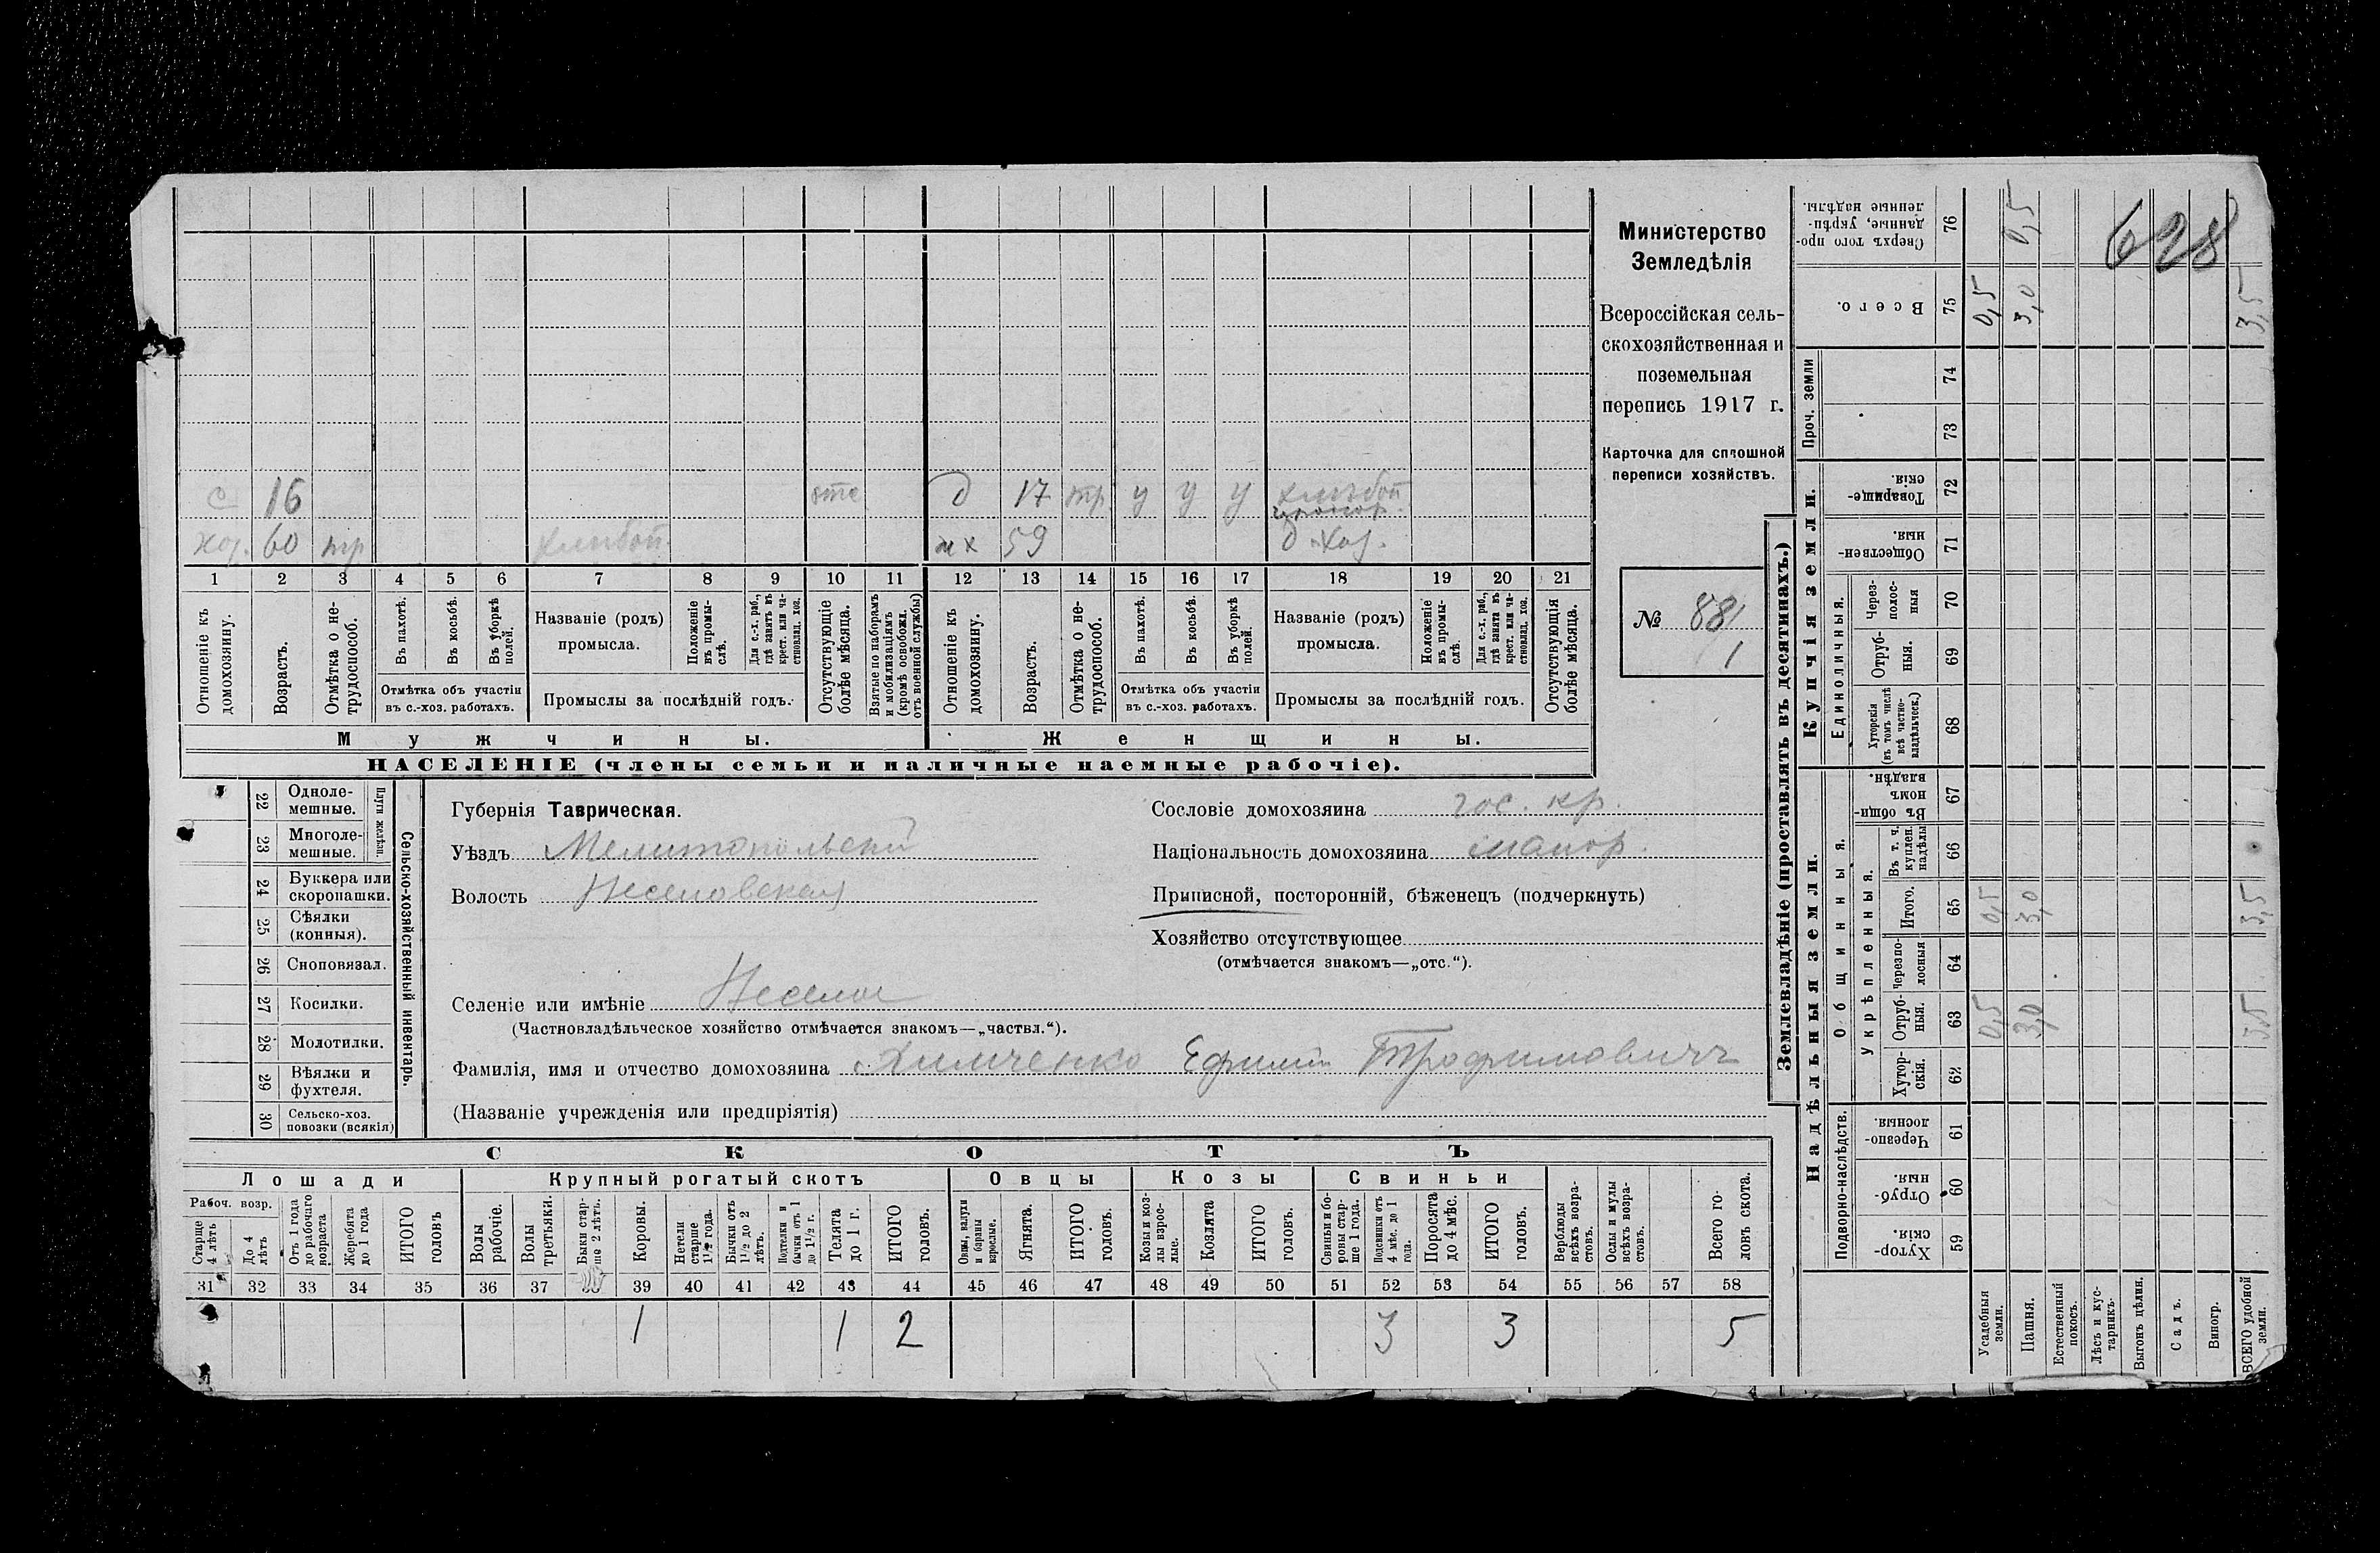 с 16 отс д 17 тр у у у хлѣбоп
хоз. 60 тр хлѣбоп. ж х 59 д. хоз.
1 2 3 4 5 6 7 8 9 10 11 12 13 14 15 16 17 18 19 20 21
Отношеніе къ домохозяину.
Возрастъ.
Отмѣтка о не-
трудоспособ.
Въ пахотѣ.
Въ косьбѣ.
Въ уборкѣ
полей.
Отмѣтка объ участіи
въ с.-хоз. работахъ.
Названіе (родъ)
промысла.
Положеніе
въ промы-
слѣ.
Для с.-х. раб.,
гдѣ занятъ въ
крест. или ча-
стновлад. хоз.
Промыслы за послѣдній годъ.
Отсутствующіе
болѣе мѣсяца.
Взятые по наборамъ
и мобилизаціямъ
(кромѣ освобожд.
отъ военной службы)
Отношеніе къ
домохозяину.
Возрастъ.
Отмѣтка о не-
трудоспособ.
Въ пахотѣ.
Въ косьбѣ.
Въ уборкѣ
полей.
Отмѣтка объ участіи
въ с.-хоз. работахъ.
Названіе (родъ)
промысла.
Положеніе
въ промы-
слѣ.
Для с.-х. раб.,
гдѣ занята въ
крест. или ча-
стновлад. хоз.
Промыслы за послѣдній годъ.
Отсутствующія
болѣе мѣсяца.
Мужчины.
Женщины.
НАСЕЛЕНІЕ (члены семьи и наличные наемные рабочіе).
Министерство
Земледѣлія
Всероссійская сель-
скохозяйственная и
поземельная
перепись 1917 г.
Карточка для сплошной
переписи хозяйствъ.
№ 881
1
22 Одноле-
мешные.
23 Многоле-
мешные.
Плуги желѣзн.
24 Буккера или
скоропашки.
25 Сѣялки
(конныя).
26 Сноповязал.
27 Косилки.
28 Молотилки.
29 Вѣялки и
фухтеля.
30 Сельско-хоз.
повозки (всякія)
Сельско-хозяйственный инвентарь.
Губернія Таврическая.
Уѣздъ Мелитопольскій
Волость Веселовская
Селеніе или имѣніе Веселое
(Частновладѣльческое хозяйство отмѣчается знакомъ—„частвл.“).
Фамилія, имя и отчество домохозяина Химченко Ефимъ Трофимовичъ
(Названіе учрежденія или предпріятія)
Сословіе домохозяина гос. кр.
Національность домохозяина малор.
Приписной, посторонній, бѣженецъ (подчеркнуть)
Хозяйство отсутствующее
(отмѣчается знакомъ—„отс.“).
СКОТЪ
Лошади Крупный рогатый скотъ Овцы Козы Свиньи
Рабоч. возр.
Старше
4 лѣтъ
До 4
лѣтъ
Отъ 1 года
до рабочаго
возраста
Жеребята
до 1 года
ИТОГО
головъ
Волы
рабочіе.
Волы
третьяки.
Быки стар-
ше 2 лѣтъ.
Коровы.
Нетели
старше
1½ года.
Бычки отъ
1½ до 2
лѣтъ.
Подтелки и
бычки отъ 1
до 1½ г.
Телята
до 1 г.
ИТОГО
головъ.
Овцы, валухи
и бараны
взрослые.
Ягнята.
ИТОГО
головъ.
Козы и коз-
лы взрос-
лые.
Козлята
ИТОГО
головъ.
Свиньи и бо-
ровы стар-
ше 1 года.
Подсвинки отъ
4 мѣс. до 1
года.
Поросята
до 4 мѣс.
ИТОГО
головъ.
Верблюды
всѣхъ возра-
стовъ.
Ослы и мулы
всѣхъ возра-
стовъ.
Всего го-
ловъ скота.
31 32 33 34 35 36 37 38 39 40 41 42 43 44 45 46 47 48 49 50 51 52 53 54 55 56 57 58
1 1 2 3 3 5
Землевладѣніе (проставлять въ десятинахъ.)
Надѣльныя земли.
Купчія земли.
Проч. земли
Подворно-наслѣдств.
Общинныя.
Укрѣпленныя.
Единоличныя.
Хутор-
скія. 59
Отруб-
ныя. 60
Черезпо-
лосныя 61
Хутор-
скія. 62
Отруб-
ныя. 63
Черезпо-
лосныя 64
Итого. 65
Въ т. ч.
куплен.
надѣлы 66
Въ общи-
номъ
владѣн. 67
Хуторскія
(въ томъ числѣ
всѣ частно-
владѣльческ.) 68
Отруб-
ныя. 69
Через-
полос-
ныя 70
Обществен-
ныя 71
Товарище-
скія. 72
73
74
Всего. 75
Сверхъ того про-
данные, укрѣп-
ленные надѣлы. 76
Усадебныя
земли. 0,5 0,5 0,5
Пашня. 3,0 3,0 3,0 0,5
Естественный
покосъ.
Лѣсъ и кус-
тарникъ.
Выгонъ цѣлин.
Садъ.
Виногр.
ВСЕГО удобной
земли. 3,5 3,5 3,5
628